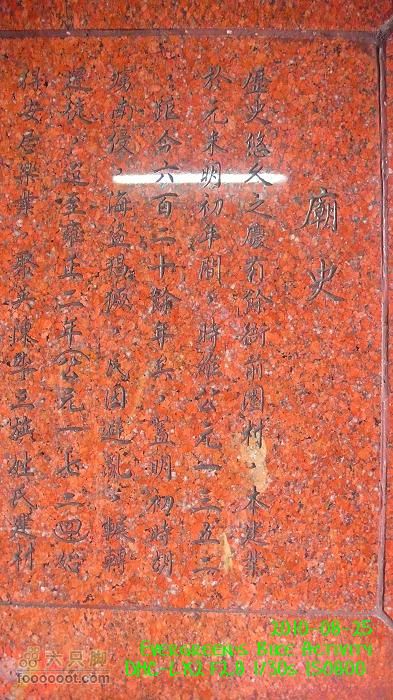 廟史
歷史悠久之慶有餘街前圍村、本建業
於元末明初年間，時維公元一三五二
，距今六百二十餘年矣，蓋明初時胡
虜南侵，海盜猖獗，民因避亂，輾轉
遷徙，迄至雍正二年(公元一七二四始
得安居樂業 聚英陳朱三族姓氏建村
2010-08-25
Evergreen's Bike Activity
DMC-LX2 F2.8 1/30s ISO800
六只脚
foooooot.com